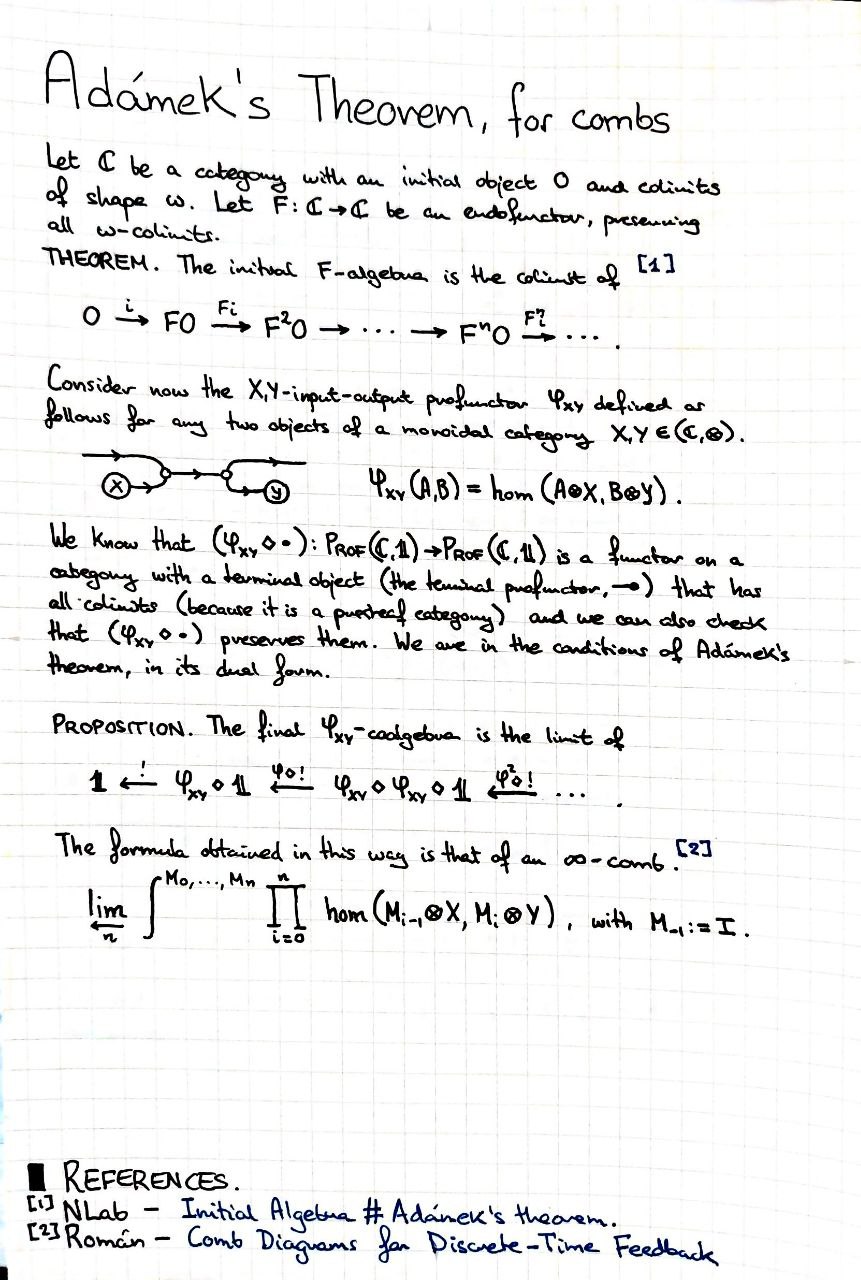 Adámek's Theorem, for combs
Let ℂ be a category with an initial object O and colimits
of shape ω. Let F: ℂ→ℂ be an endofunctor, preserving
all ω-colimits.
THEOREM. The initial F-algebra is the colimit of [1]
O →^i FO →^{Fi} F²O → ··· → FⁿO →^{Fⁿi} ··· .
Consider now the X,Y-input-output profunctor φ_XY defined as
follows for any two objects of a monoidal category X,Y ∈ (ℂ,⊗).
X Y φ_XY (A,B) = hom (A⊗X, B⊗Y).
We know that (φ_XY ⋄ •): PROF(ℂ,𝟙) → PROF(ℂ,𝟙) is a functor on a
category with a terminal object (the terminal profunctor, ⊸) that has
all colimits (because it is a presheaf category) and we can also check
that (φ_XY ⋄ •) preserves them. We are in the conditions of Adámek's
theorem, in its dual form.
PROPOSITION. The final φ_XY-coalgebra is the limit of
𝟙 ←^! φ_XY ⋄ 𝟙 ←^{φ⋄!} φ_XY ⋄ φ_XY ⋄ 𝟙 ←^{φ²⋄!} ··· .
The formula obtained in this way is that of an ∞-comb. [2]
lim_{←n} ∫^{M₀,...,Mₙ} ∏_{i=0}^{n} hom (M_{i-1}⊗X, M_i⊗Y), with M_{-1} := I.
REFERENCES.
[1] NLab – Initial Algebra # Adámek's theorem.
[2] Román – Comb Diagrams for Discrete-Time Feedback